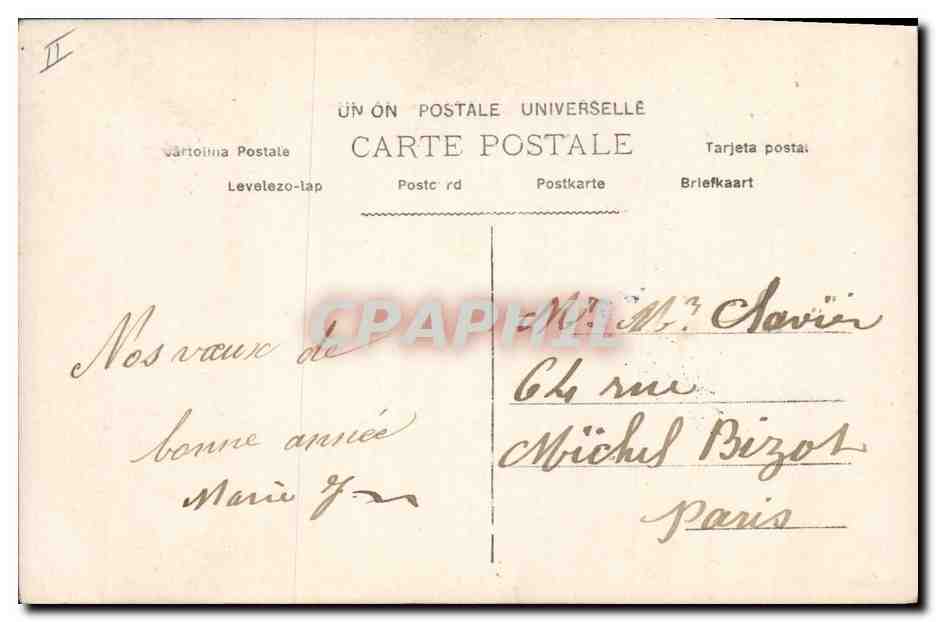 II
UN ON POSTALE UNIVERSELLE
CARTE POSTALE
Cartolina Postale
Tarjeta postal
Levelezo-lap
Postc rd
Postkarte
Briefkaart
CPAPHIL
Nos vœux de
bonne année
Marie J
Mr. Mr Clavier
64 rue
Michel Bizot
Paris